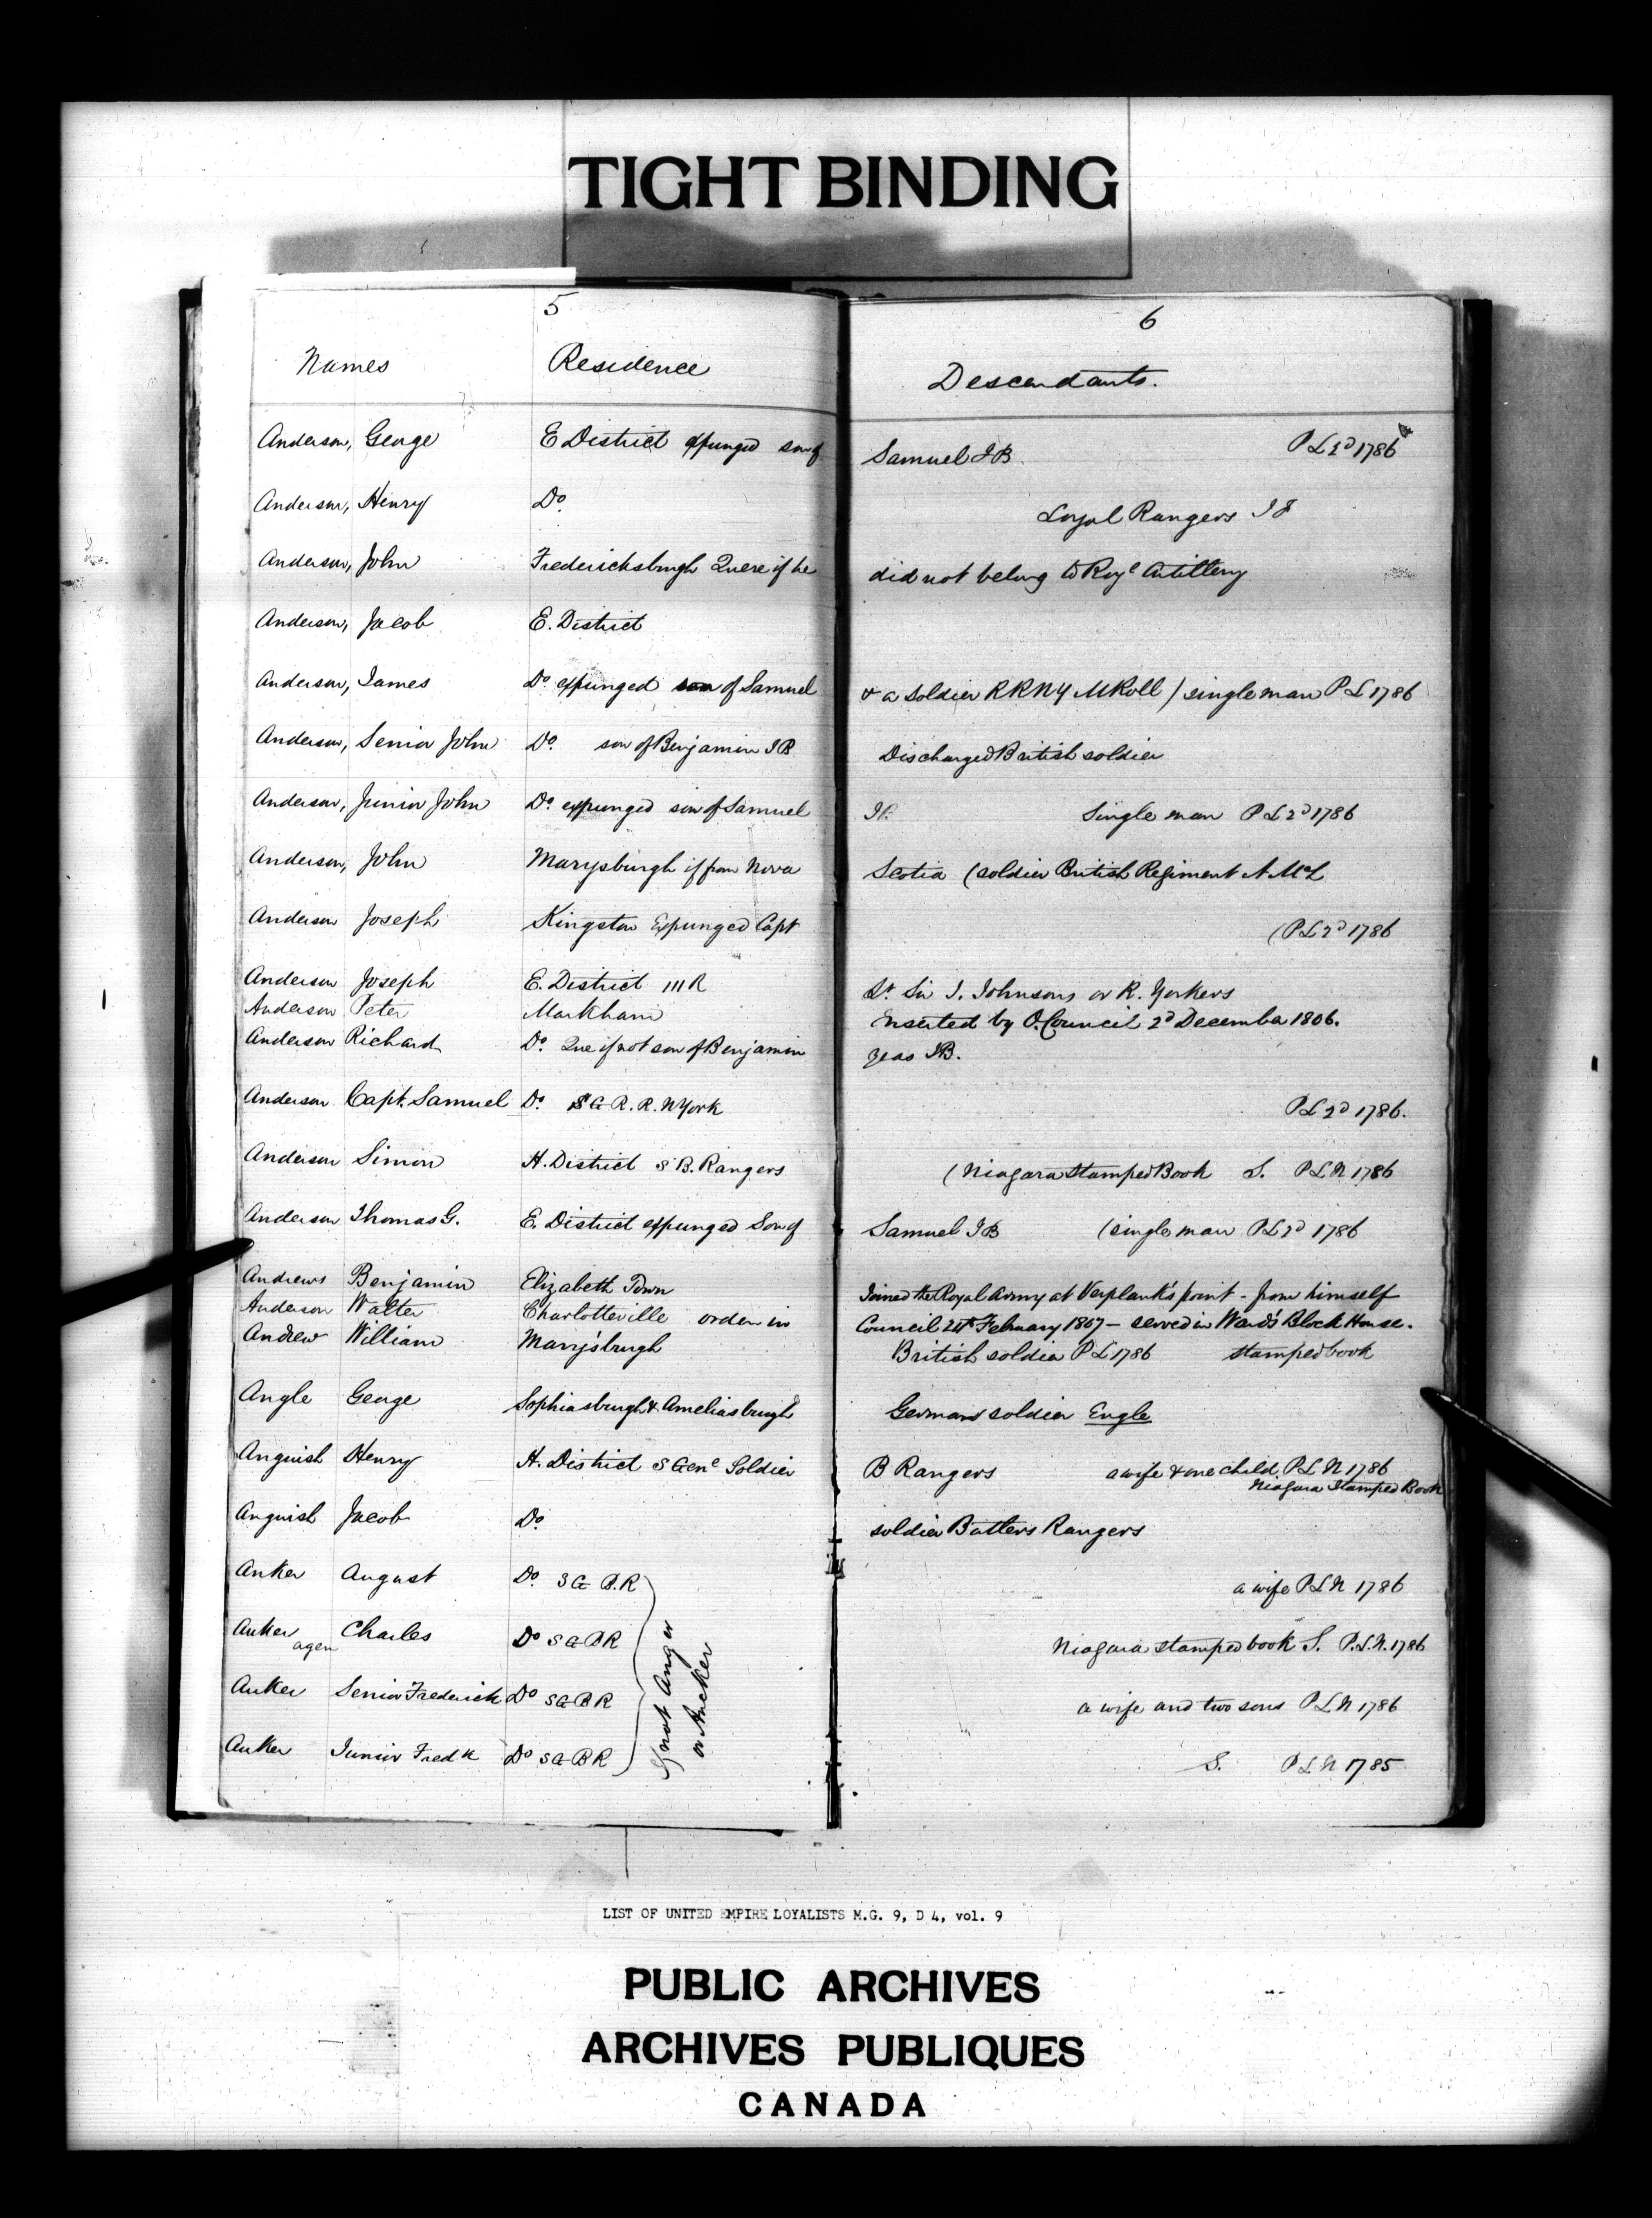 TIGHT BINDING
5
6
Names Residence Descendants.
Anderson, George E District expunged son of Samuel I B P L 2d 1786
Anderson, Henry Do. Loyal Rangers I J
Anderson, John Fredericksburgh Quere if he did not belong to Royl Artillery
Anderson, Jacob E. District
Anderson, James Do expunged son of Samuel & a Soldier RRNY M Roll / single man P L 1786
Anderson, Senior John Do. son of Benjamin I B Discharged British soldier
Anderson, Junior John Do. expunged son of Samuel I B Single man P L 2d 1786
Anderson, John Marysburgh if from Nova Scotia (soldier British Regiment A McL
Anderson Joseph Kingston Expunged Capt (P L 2d 1786
Anderson Joseph E. District M R Lt Sir J. Johnsons or R. Yorkers
Anderson Peter Markham inserted by O. Council 2d December 1806.
Anderson Richard Do. Que if not son of Benjamin yeas I B.
Anderson Capt. Samuel Do. S G R. R. N York P L 2d 1786.
Anderson Simon H. District S B. Rangers (Niagara Stamped Book S. P L N 1786
Anderson Thomas G. E. District expunged Son of Samuel I B (single man P L 2d 1786
Andrews Benjamin Elizabeth Town Joined the Royal Army at Verplank's point - from himself
Anderson Walter Charlotteville order in Council 24th February 1807 - served in Ward's Block House.
Andrew William Marysburgh British soldier P L 1786 stamped book
Angle George Sophiasburgh & Ameliasburgh German soldier Engle
Anguish Henry H. District S Gene Soldier B Rangers a wife & one child P L N 1786
Niagara Stamped Book
Anguish Jacob Do. soldier Butlers Rangers
Anker August Do. S G B. R a wife P L N 1786
Anker Charles Do S G B R Niagara stamped book S. P. L. N. 1786
agen
Anker Senior Frederick Do S G B R a wife and two sons P L N 1786
Anker Junior Fredk Do S G B R S. P L N 1785
if not Anger
or Ancker
LIST OF UNITED EMPIRE LOYALISTS M.G. 9, D 4, vol. 9
PUBLIC ARCHIVES
ARCHIVES PUBLIQUES
CANADA